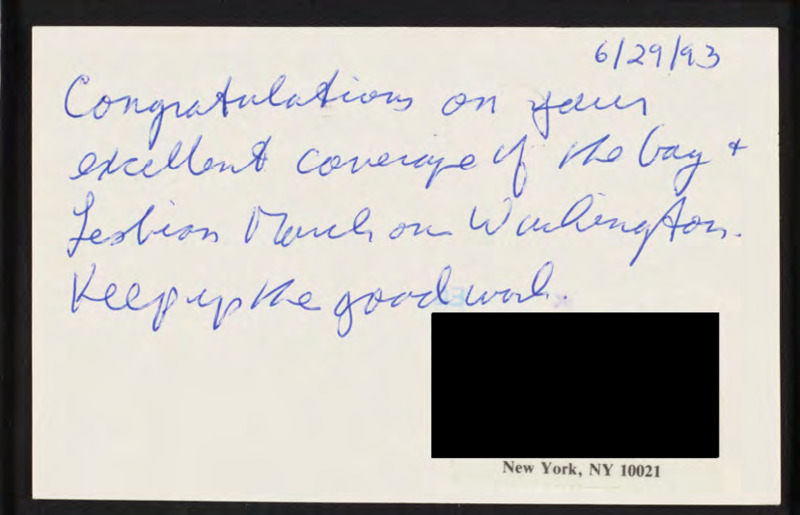 6/29/93
Congratulations on your
excellent coverage of the Gay +
Lesbian March on Washington.
Keep up the good work.
New York, NY 10021